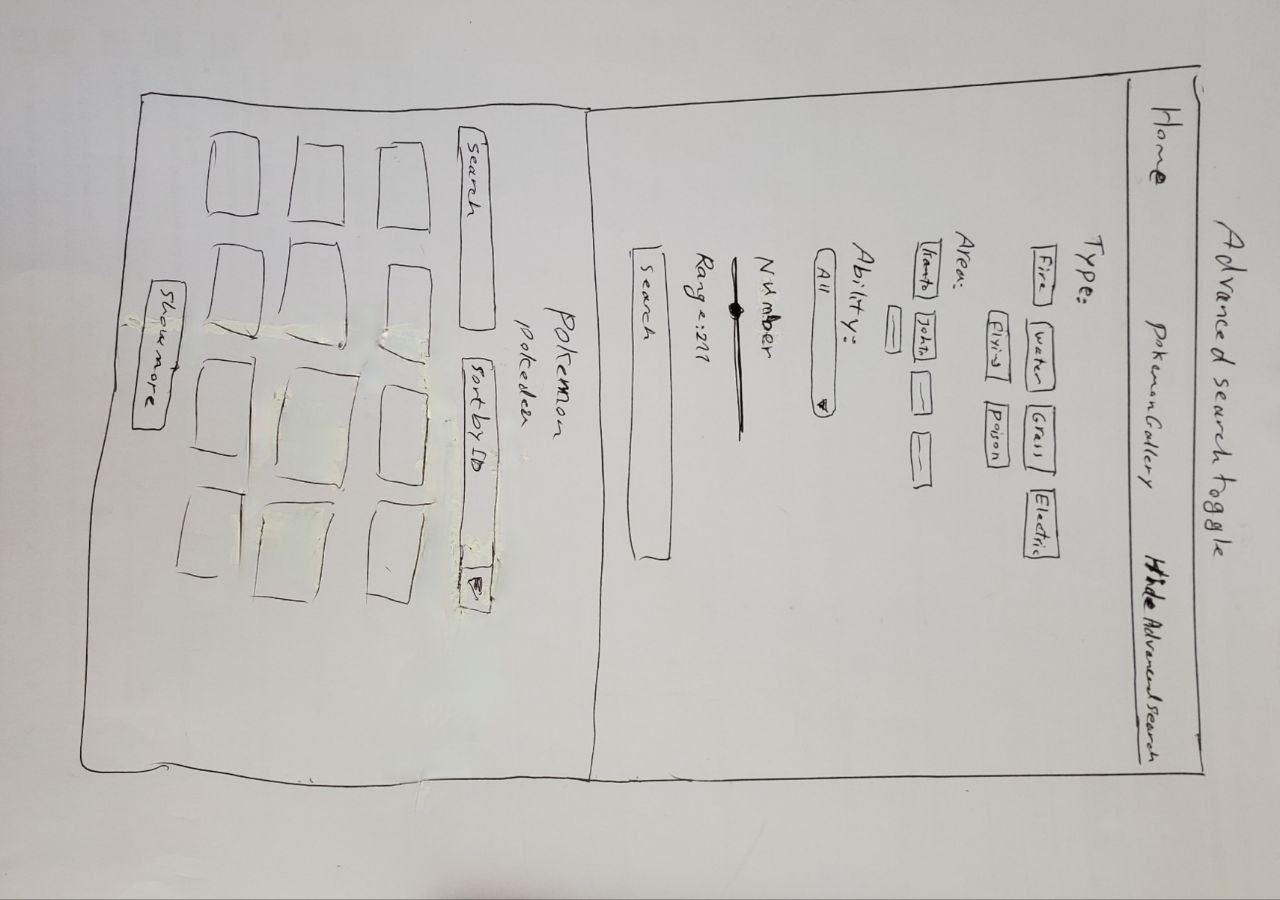 Advanced search toggle
Home Pokemon Gallery Hide Advanced search
Type:
Fire water Grass Electric
flying Poison
Area:
kanto Johto
Ability:
All
Number
Range:211
Search
Pokemon
Pokedex
Search Sort by ID
Show more